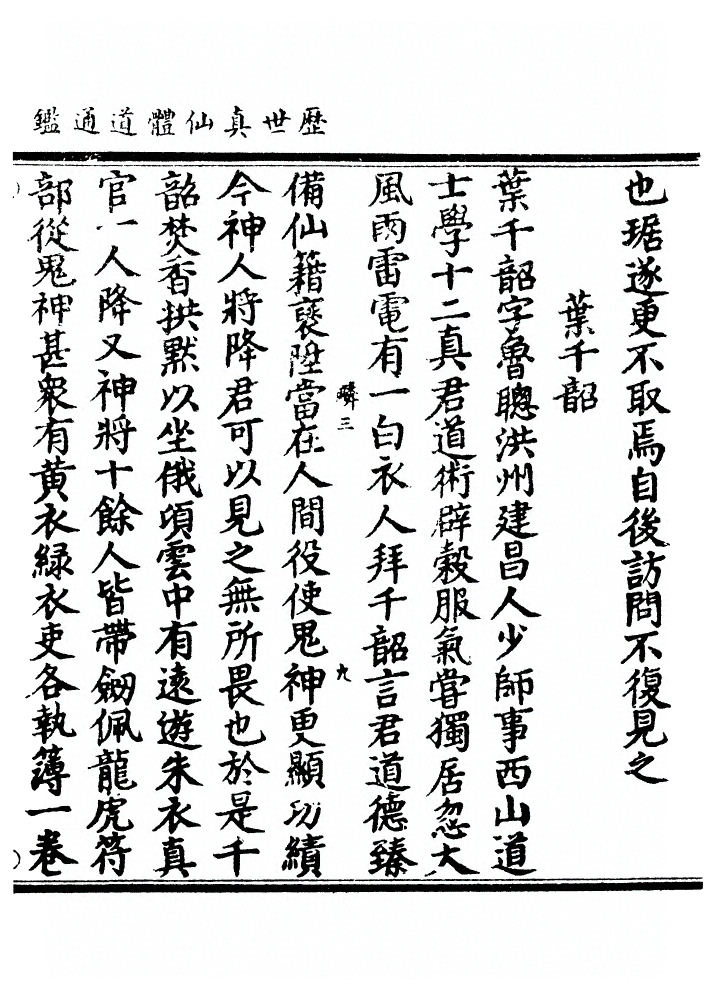 歷世真仙體道通鑑
也琚遂更不取焉自後訪問不復見之
葉千韶
葉千韶字魯聰洪州建昌人少師事西山道
士學十二真君道術辟穀服氣甞獨居忽大
風雨雷電有一白衣人拜千韶言君道德臻
備仙籍襃陞當在人間役使鬼神更顯功績
鳞三
九
今神人將降君可以見之無所畏也於是千
韶焚香拱默以坐俄頃雲中有遠遊朱衣真
官一人降又神將十餘人皆帶劒佩龍虎符
部從鬼神甚衆有黃衣綠衣吏各執簿一卷